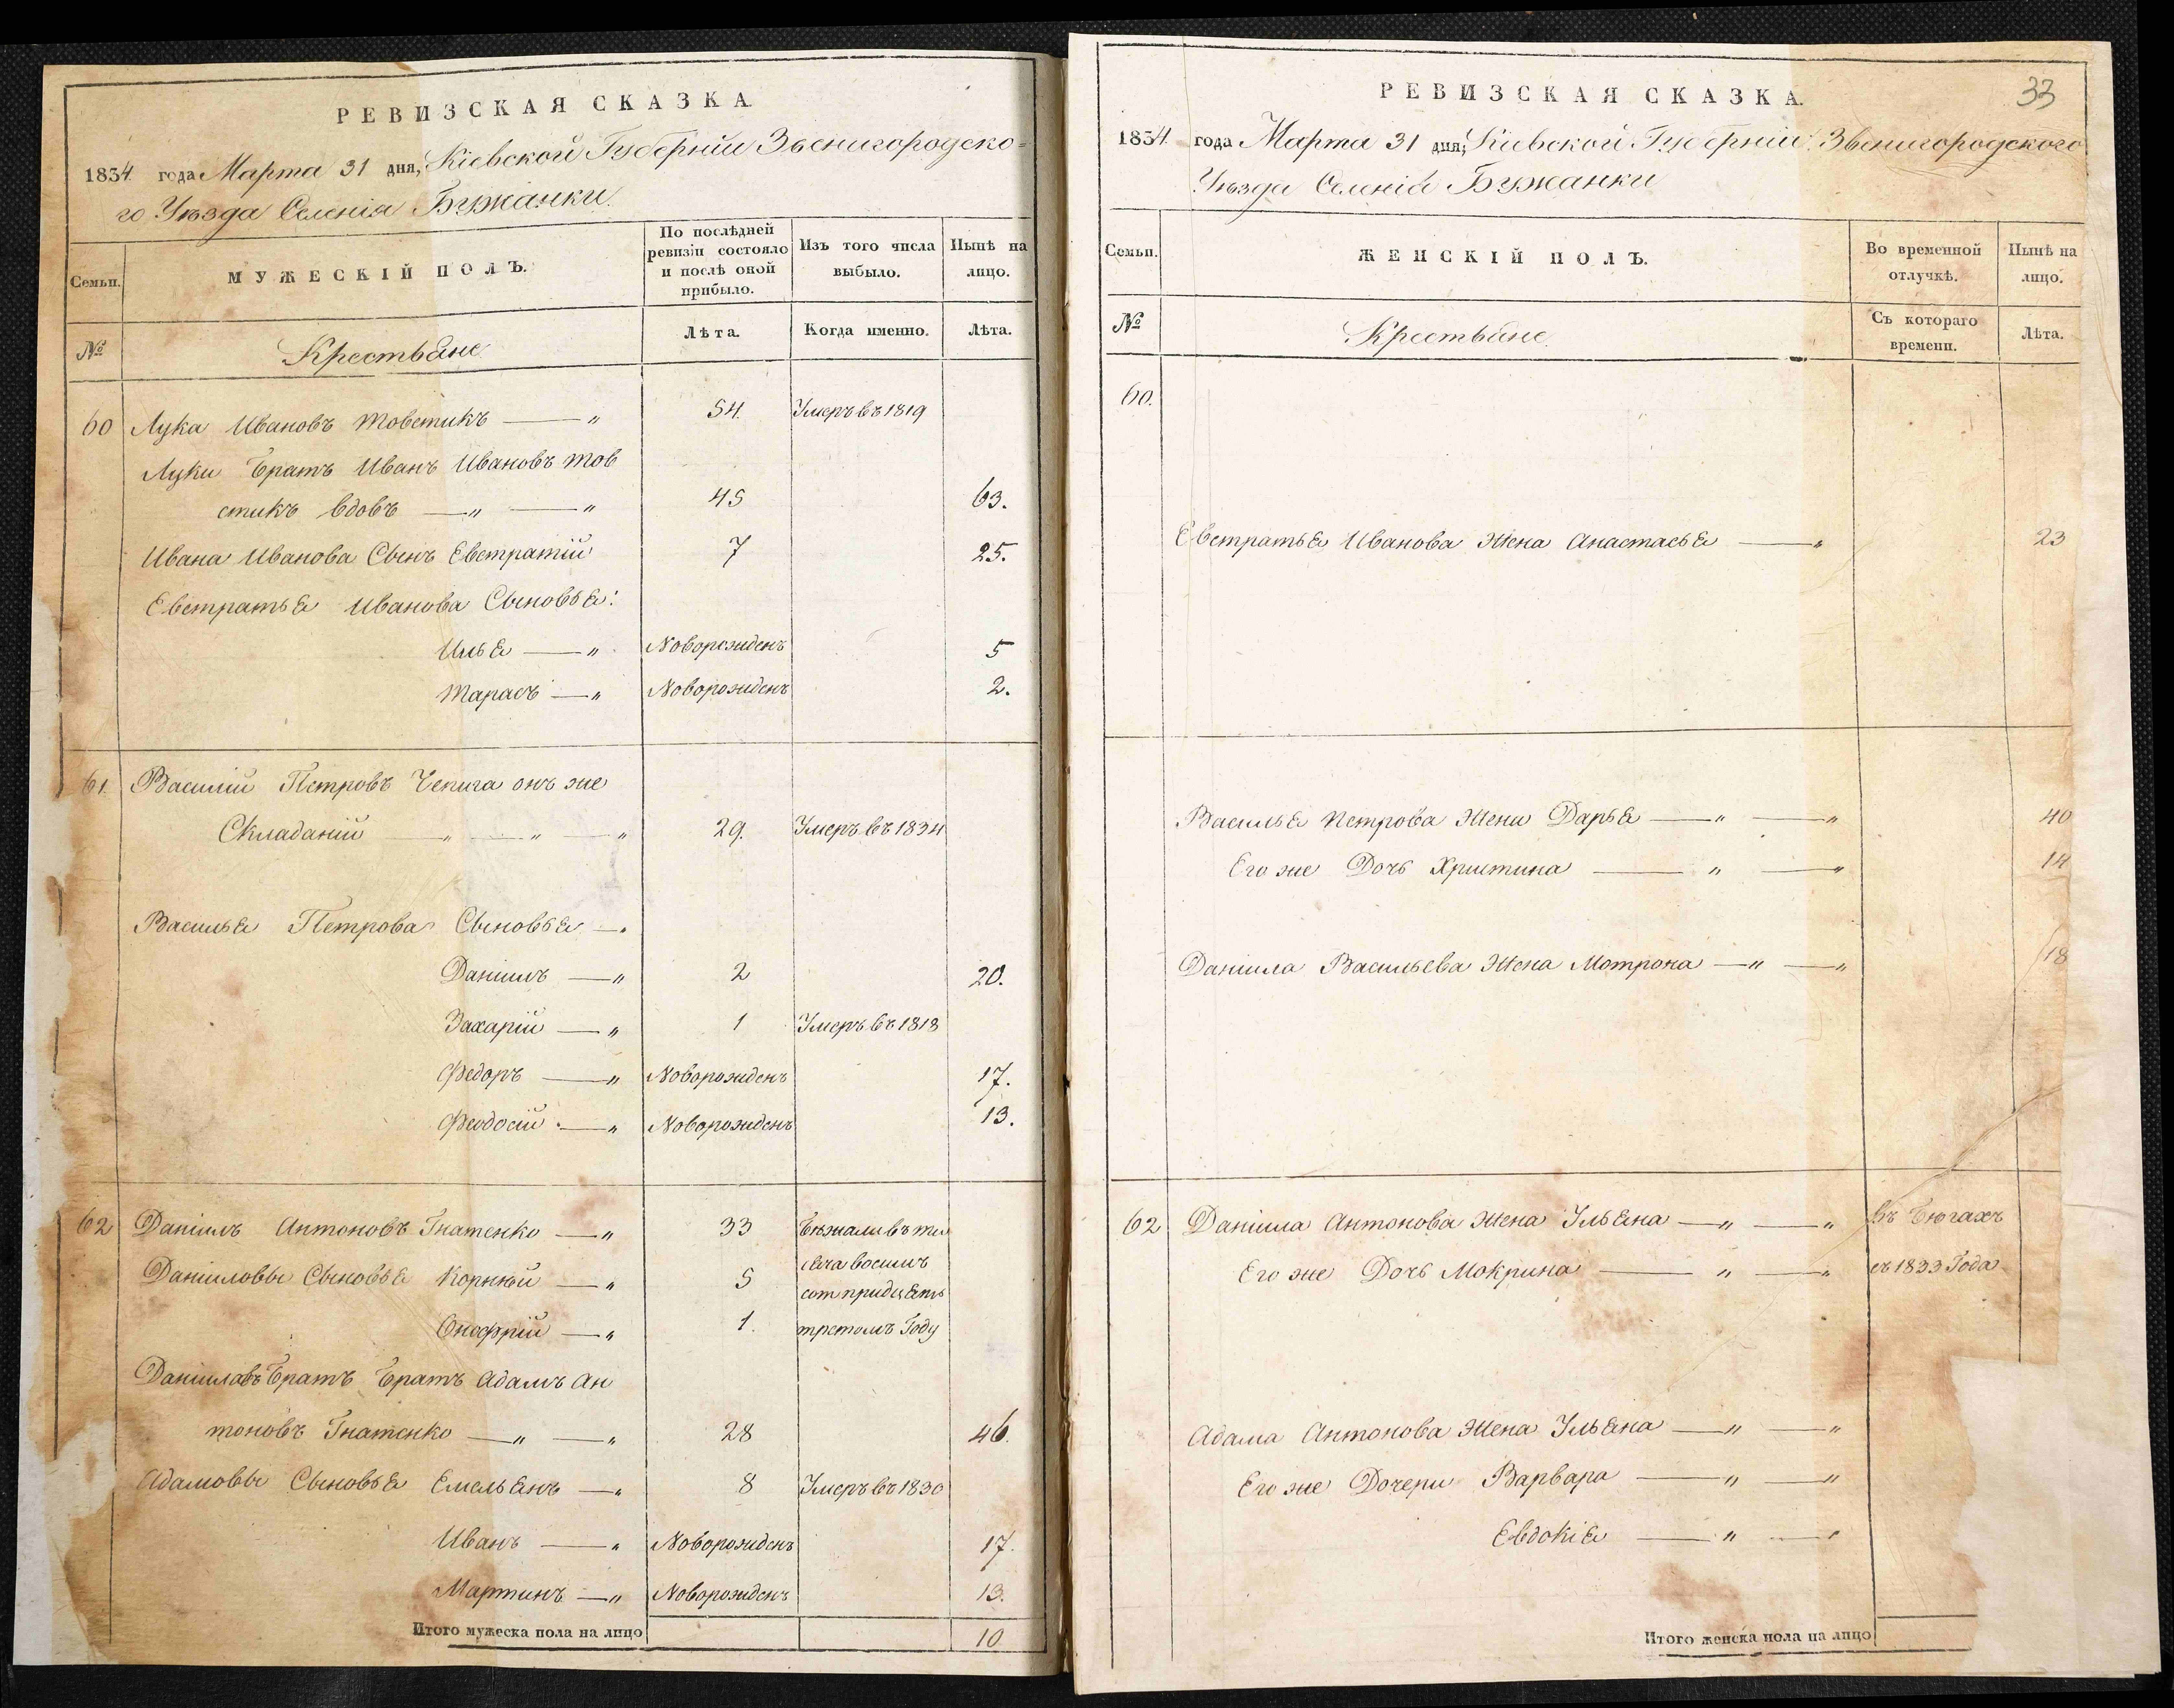 РЕВИЗСКАЯ СКАЗКА.
1834 года Марта 31 дня, Кіевской Губерніи Звенигородско-
го Уѣзда Селенія Бужанки.
Семьи.
МУЖЕСКІЙ ПОЛЪ.
По послѣдней ревизіи состояло и послѣ оной прибыло.
Изъ того числа выбыло.
Нынѣ на лицо.
№
Крестьяне
Лѣта.
Когда именно.
Лѣта.
60 Лука Ивановъ Товстикъ — " 54. Умеръ въ 1819
Луки Братъ Иванъ Ивановъ Тов
стикъ вдовъ — " — " 45 63.
Ивана Иванова Сынъ Евстратій 7 25.
Евстратья Иванова Сыновья:
Илья — " Новорожденъ 5
Тарасъ — " Новорожденъ 2.
61. Василій Петровъ Чепига онъ же
Складаній — " — " — " 29. Умеръ въ 1834
Василья Петрова Сыновья — "
Даніилъ — " 2 20.
Захарій — " 1 Умеръ въ 1818
Федоръ — " Новорожденъ 17.
Феодосій — " Новорожденъ 13.
62 Даніилъ Антоновъ Гнатенко — " 33 Бѣжали въ ты
Даниловы Сыновья Корнѣй — " 5 сяча восемь
сот тридцять
Онофрій — " 1. третомъ Году
Даніиловъ Братъ Братъ Адамъ Ан
тоновъ Гнатенко — " — " 28 46.
Адамовы Сыновья Емельянъ — " 8 Умеръ въ 1830
Иванъ — " Новорожденъ 17.
Мартинъ — " Новорожденъ 13.
Итого мужеска пола на лицо 10
33
РЕВИЗСКАЯ СКАЗКА.
1834 года Марта 31 дня, Кіевской Губерніи Звенигородского
Уѣзда Селенія Бужанки
Семьи.
ЖЕНСКІЙ ПОЛЪ.
Во временной отлучкѣ.
Нынѣ на лицо.
№
Крестьяне.
Съ котораго времени.
Лѣта.
60.
Евстратья Иванова Жена Анастасья — " 23
Василья Петрова Жена Дарья — " — " 40
Его же Дочь Христина — " — " 14
Даніила Васильева Жена Мотрона — " — " 18
62 Даніила Антонова Жена Ульяна — " — " въ бѣгахъ
Его же Дочь Мокрина — " — " съ 1833 Года
Адама Антонова Жена Ульяна — " — "
Его же Дочери Варвара — " — "
Евдокія — " — "
Итого женска пола на лицо